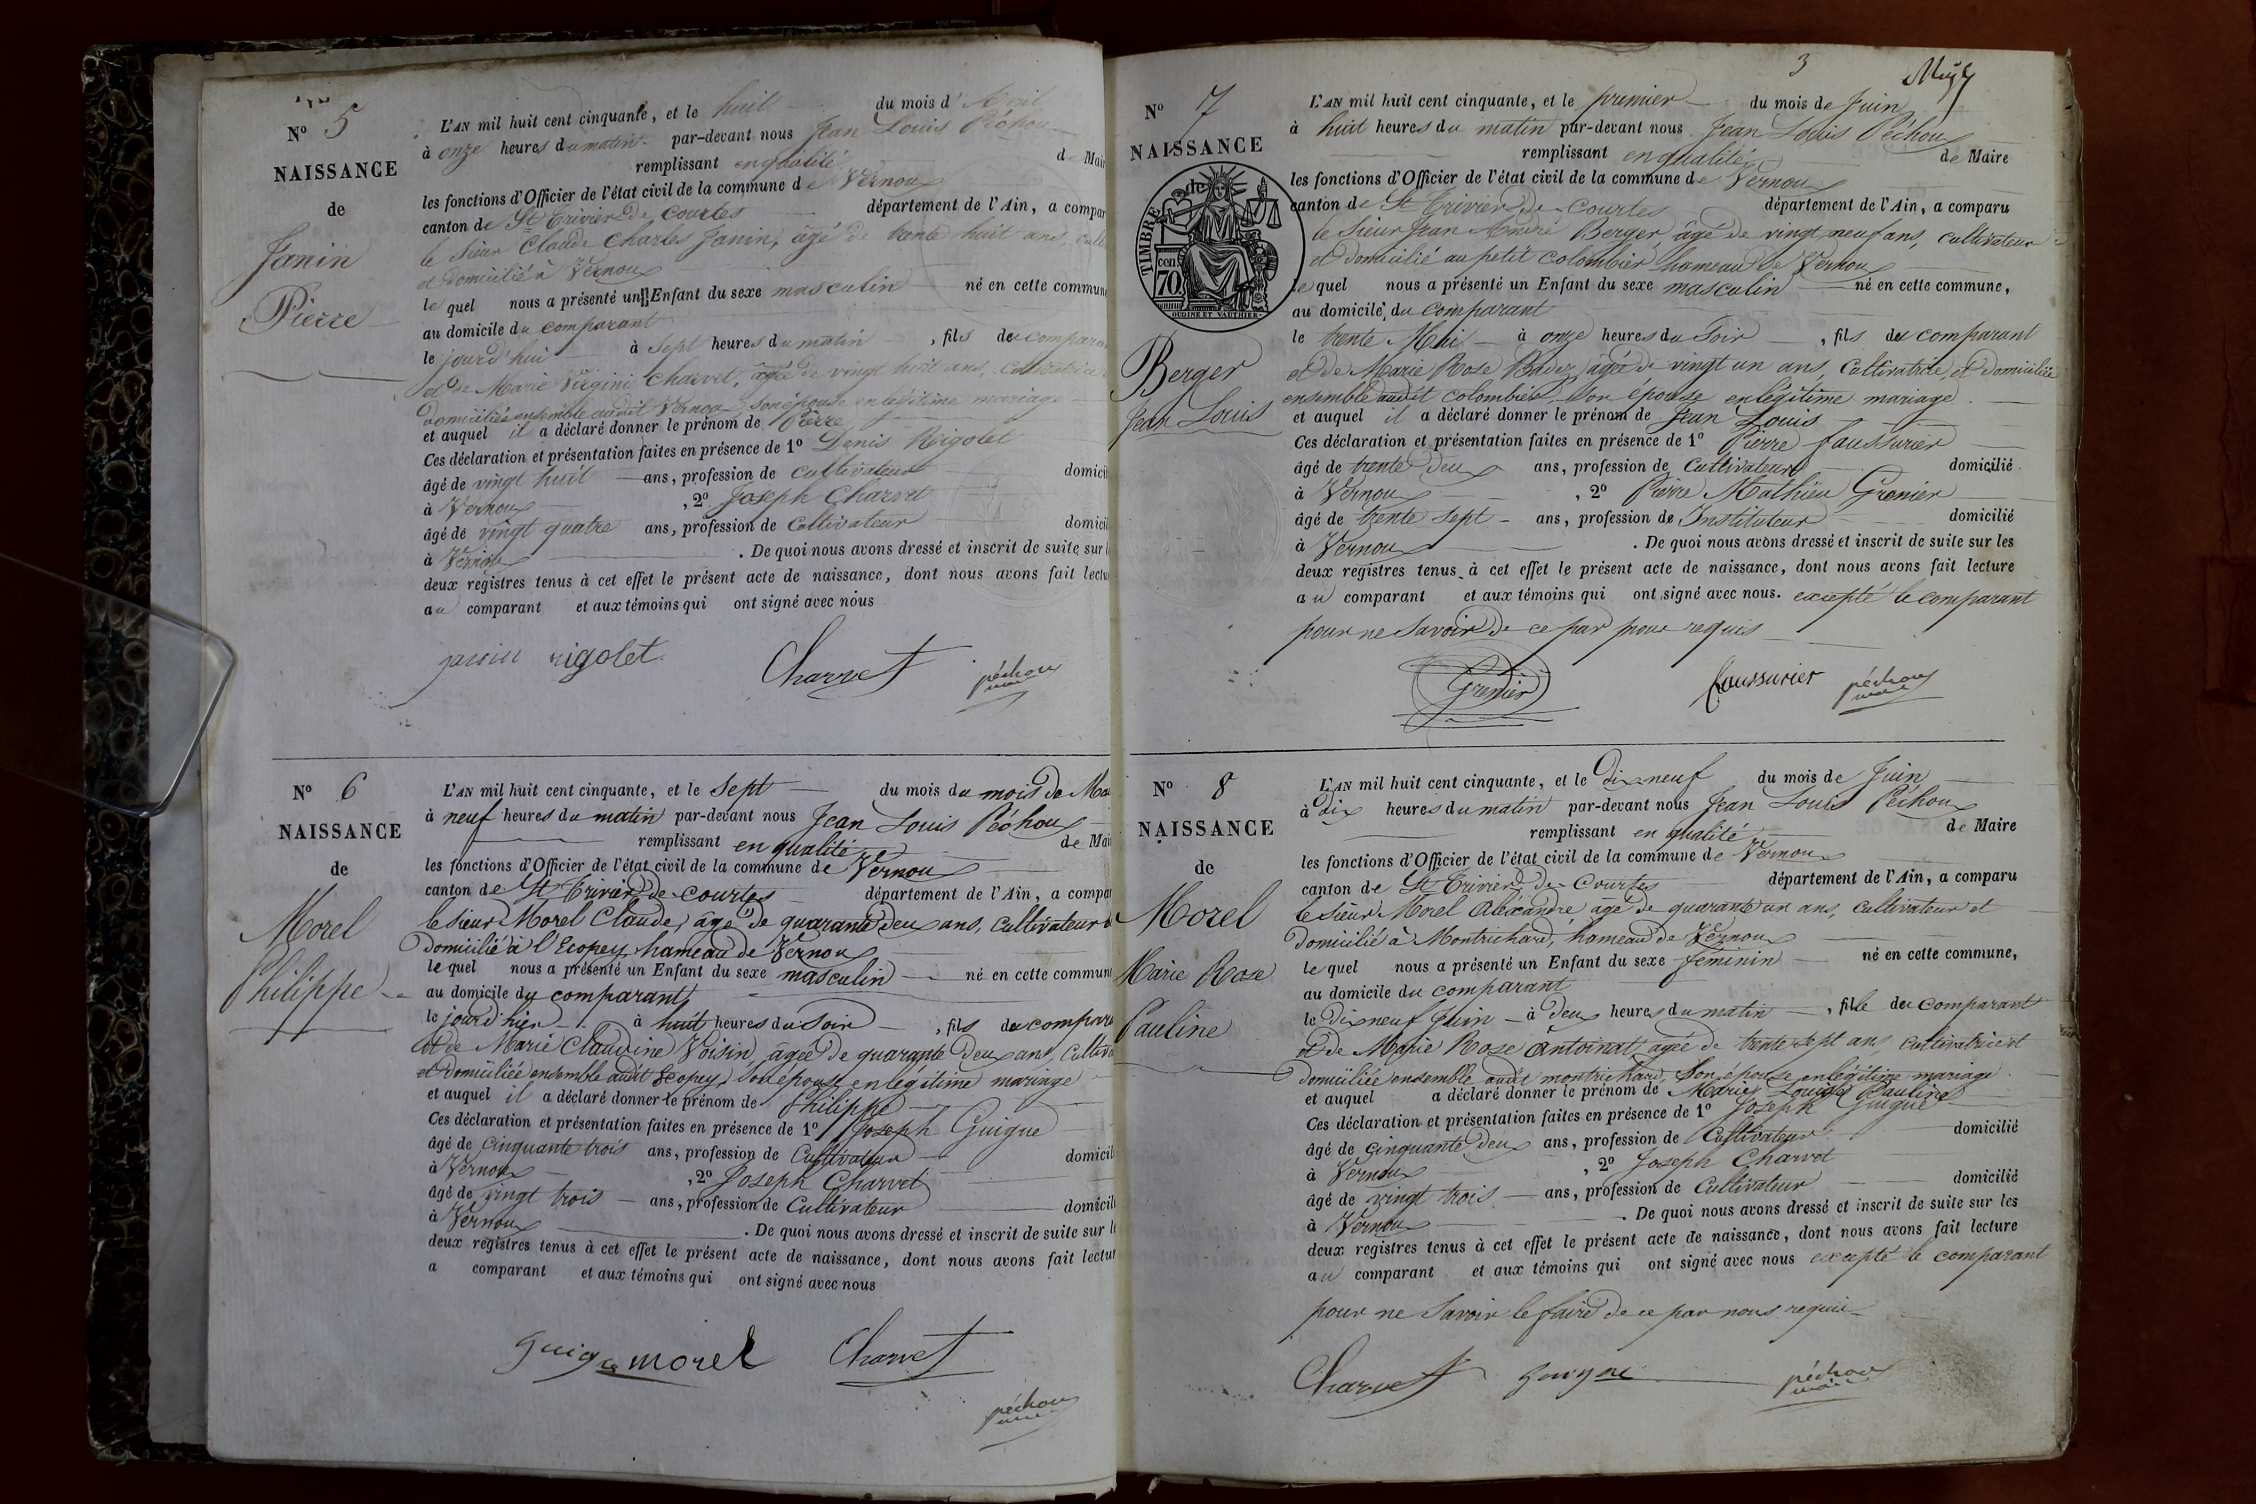 Nº 5
NAISSANCE
de
Janin
Pierre
L'AN mil huit cent cinquante, et le huit du mois d'Avril
à onze heures du matin par-devant nous Jean Louis Péchoux
remplissant en qualité de Mair
les fonctions d'Officier de l'état civil de la commune de Vernoux
canton de St Trivier de Courtes département de l'Ain, a compar
le Sieur Claude Charles Janin, âgé de trente huit ans, culti
et domicilié à Vernoux
lequel nous a présenté un Enfant du sexe masculin né en cette commune
au domicile du comparant
le jourd'hui à sept heures du matin, fils du comparant
et de Marie Virginie Charvet, âgée de vingt huit ans, cultivatrice
domiciliée ensemble audit Vernoux, son épouse en légitime mariage
et auquel il a déclaré donner le prénom de Pierre
Ces déclaration et présentation faites en présence de 1º Denis Rigolet
âgé de vingt huit ans, profession de cultivateur domicili
à Vernoux, 2º Joseph Charvet
âgé de vingt quatre ans, profession de Cultivateur domicili
à Vernoux. De quoi nous avons dressé et inscrit de suite sur l
deux registres tenus à cet effet le présent acte de naissance, dont nous avons fait lectu
au comparant et aux témoins qui ont signé avec nous
janin rigolet Charvet péchoux
maire
Nº 6
NAISSANCE
de
Morel
Philippe
L'AN mil huit cent cinquante, et le sept du mois du mois de Mai
à neuf heures du matin par-devant nous Jean Louis Péchoux
remplissant en qualité de Mai
les fonctions d'Officier de l'état civil de la commune de Vernoux
canton de St Trivier de Courtes département de l'Ain, a compar
le sieur Morel Claude, âgé de quarante deux ans, Cultivateur
domicilié à l'Ecopey hameau de Vernoux
lequel nous a présenté un Enfant du sexe masculin né en cette commune
au domicile du comparant
le jourd'hier à huit heures du Soir, fils du compara
et de Marie Claudine Voisin, âgée de quarante deux ans, Cultiva
et domiciliée ensemble audit Ecopey, son épouse en légitime mariage
et auquel il a déclaré donner le prénom de Philippe
Ces déclaration et présentation faites en présence de 1º Joseph Guigue
âgé de Cinquante trois ans, profession de Cultivateur domicili
à Vernoux, 2º Joseph Charvet
âgé de vingt trois ans, profession de Cultivateur domicili
à Vernoux. De quoi nous avons dressé et inscrit de suite sur le
deux registres tenus à cet effet le présent acte de naissance, dont nous avons fait lectur
a comparant et aux témoins qui ont signé avec nous
guigue morel Charvet
péchoux
maire
3
Nº 7
NAISSANCE
de
TIMBRE
cen
70
OUDINÉ ET VAUTHIER
Berger
Jean Louis
L'AN mil huit cent cinquante, et le premier du mois de Juin
à huit heures du matin par-devant nous Jean Louis Péchoux
remplissant en qualité de Maire
les fonctions d'Officier de l'état civil de la commune de Vernoux
canton de St Trivier de Courtes département de l'Ain, a comparu
le Sieur Jean André Berger âgé de vingt neuf ans, cultivateur
et domicilié au petit Colombier hameau de Vernoux
lequel nous a présenté un Enfant du sexe masculin né en cette commune,
au domicile du comparant
le trente Mai à onze heures du Soir, fils du comparant
et de Marie Rose Badez, âgée de vingt un ans, Cultivatrice, et domiciliée
ensemble audit colombier, son épouse en légitime mariage
et auquel il a déclaré donner le prénom de Jean Louis
Ces déclaration et présentation faites en présence de 1º Pierre Faussurier
âgé de trente deux ans, profession de Cultivateur domicilié
à Vernoux, 2º Pierre Mathieu Grenier
âgé de trente sept ans, profession de Instituteur domicilié
à Vernoux. De quoi nous avons dressé et inscrit de suite sur les
deux registres tenus à cet effet le présent acte de naissance, dont nous avons fait lecture
au comparant et aux témoins qui ont signé avec nous. excepté le comparant
pour ne Savoir de ce par nous requis
Grenier faussurier péchoux
maire
Nº 8
NAISSANCE
de
Morel
Marie Rose
Pauline
L'AN mil huit cent cinquante, et le dixneuf du mois de Juin
à dix heures du matin par-devant nous Jean Louis Péchoux
remplissant en qualité de Maire
les fonctions d'Officier de l'état civil de la commune de Vernoux
canton de St Trivier de Courtes département de l'Ain, a comparu
le Sieur Morel Alexandre âgé de quarante un ans, cultivateur et
domicilié à Montrichard, hameau de Vernoux
lequel nous a présenté un Enfant du sexe féminin né en cette commune,
au domicile du comparant
le dixneuf Juin à deux heures du matin, fille du comparant
et de Marie Rose Antoinat, âgée de trente sept ans, cultivatrice et
domiciliée ensemble audit montrichard, Son épouse en légitime mariage
et auquel a déclaré donner le prénom de Marie Louise Pauline
Ces déclaration et présentation faites en présence de 1º Joseph Guigue
âgé de cinquante deux ans, profession de Cultivateur domicilié
à Vernoux, 2º Joseph Charvet
âgé de vingt trois ans, profession de Cultivateur domicilié
à Vernoux. De quoi nous avons dressé et inscrit de suite sur les
deux registres tenus à cet effet le présent acte de naissance, dont nous avons fait lecture
au comparant et aux témoins qui ont signé avec nous excepté le comparant
pour ne Savoir le faire de ce par nous requis
Charvet guigue péchoux
maire